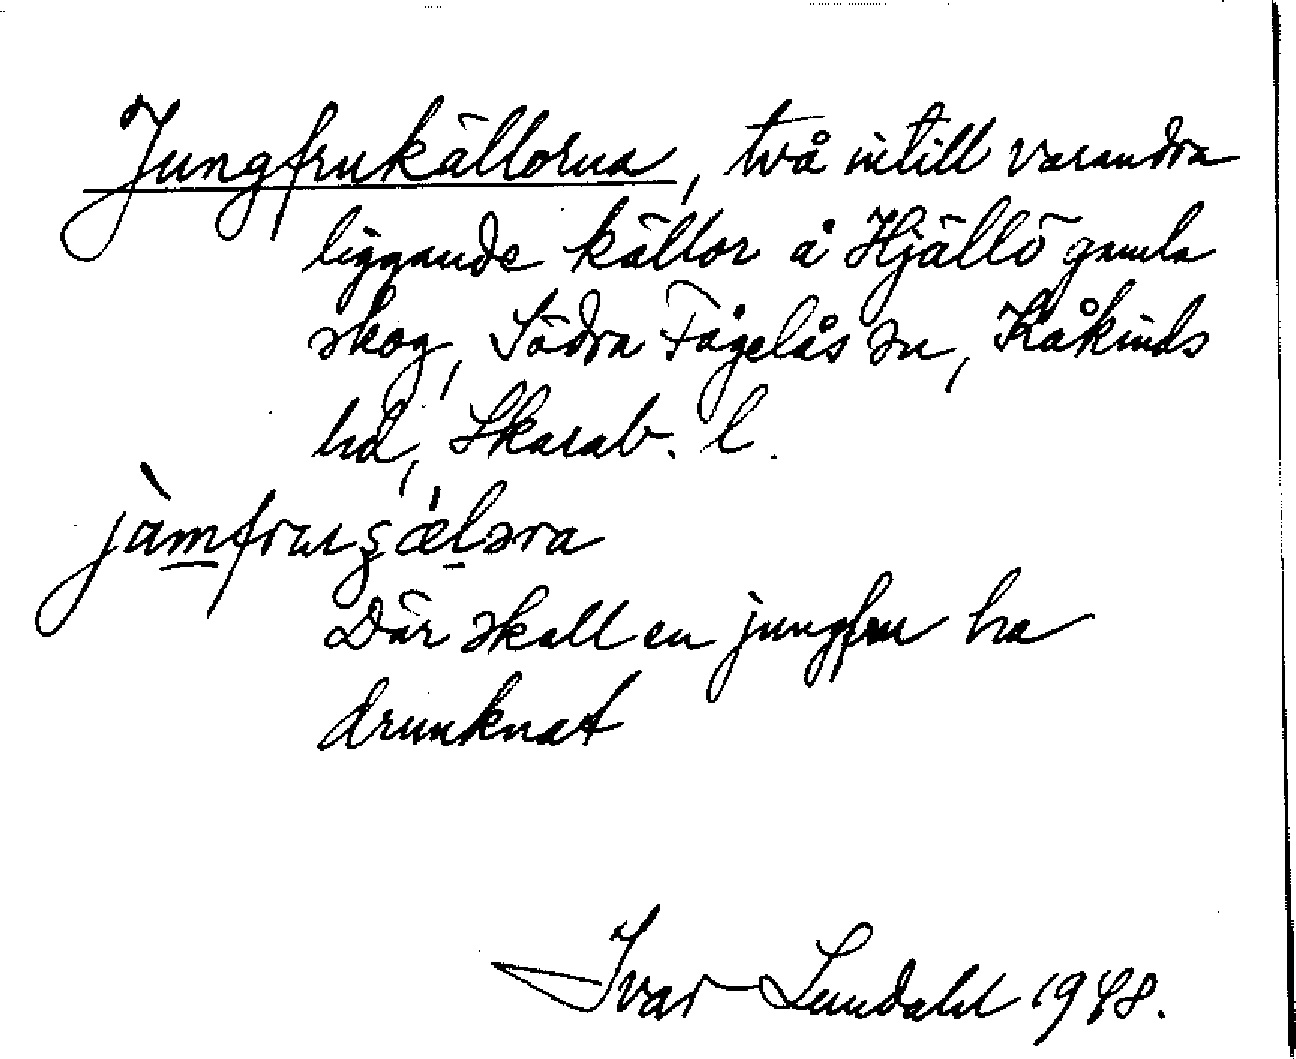 Jungfrukällorna, två intill varandra
liggande källor å Hjällö gamla
skog, Södra Fågelås sn, Kåkinds
hd, Skarab. l.
jàmfruʂǽləra
Där skall en jungfru ha
drunknat
Ivar Lundahl 1948.